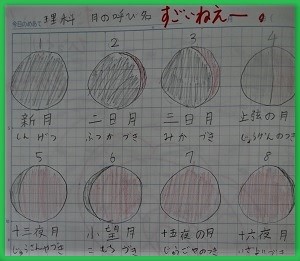 今日のめあて 理科 月の呼び名 すごいねえー。
1 2 3 4
新月 二日月 三日月 上弦の月
しんげつ ふつかづき みかづき じょうげんのつき
5 6 7 8
十三夜月 小望月 十五夜の月 十六夜月
じゅうさんやづき こもちづき じゅうごやのつき いざよいづき